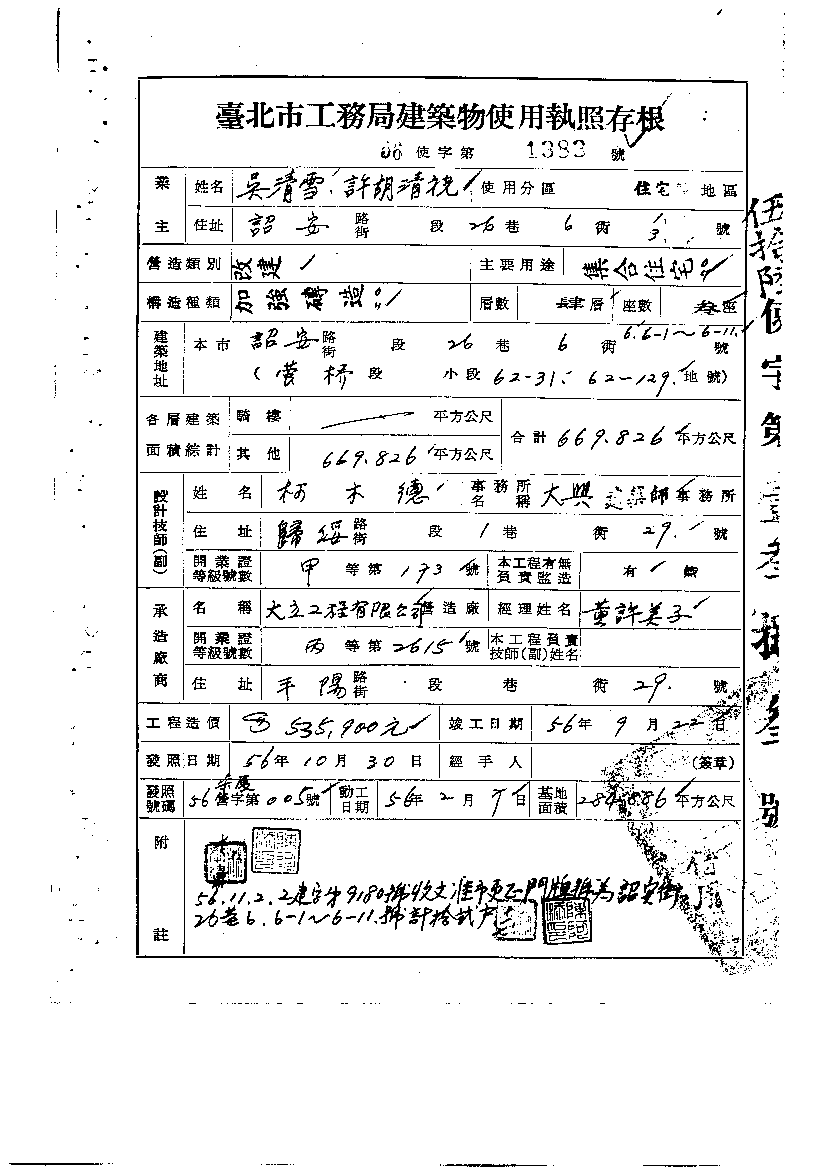 臺北市工務局建築物使用執照存根
06 使字第 1383 號
業主 姓名 吳清雪、許胡清 使用分區 住宅 地區
住址 詔安 路街 段 26 巷 6 衖 1 3 號
營造類別 改建 主要用途 集合住宅
構造種類 加強磚造 層數 肆層 座數 叁座
建築地址 本市 詔安 路街 段 26 巷 6 衖 6.6-1~6-11. 號
(營桥段 小段 62-31. 62-129. 地號)
各層建築面積綜計 騎樓 平方公尺 合計 669.826 平方公尺
其他 669.826 平方公尺
設計技師(副) 姓名 柯木德 事務所名稱 大興建築師事務所
住址 歸綏 路街 段 1 巷 衖 29. 號
開業證等級號數 甲 等第 173 號 本工程有無負責監造 有
承造廠商 名稱 大立工程有限公司營造廠 經理姓名 黃許美子
開業證等級號數 丙 等第 2615 號 本工程負責技師(副)姓名
住址 平陽 路街 段 巷 衖 29. 號
工程造價 535,900元 竣工日期 56年 9月 22日
發照日期 56年 10月 30日 經手人 (簽章)
發照號碼 56 營字第 005號 動工日期 56年 2月 9日 基地面積 284.886 平方公尺
附註
56.11.2.2建字第9180號收文准予更正門牌號為詔安街
26巷6.6-1~6-11.號計拾貳戶
伍拾陸使字第壹叁捌叁號